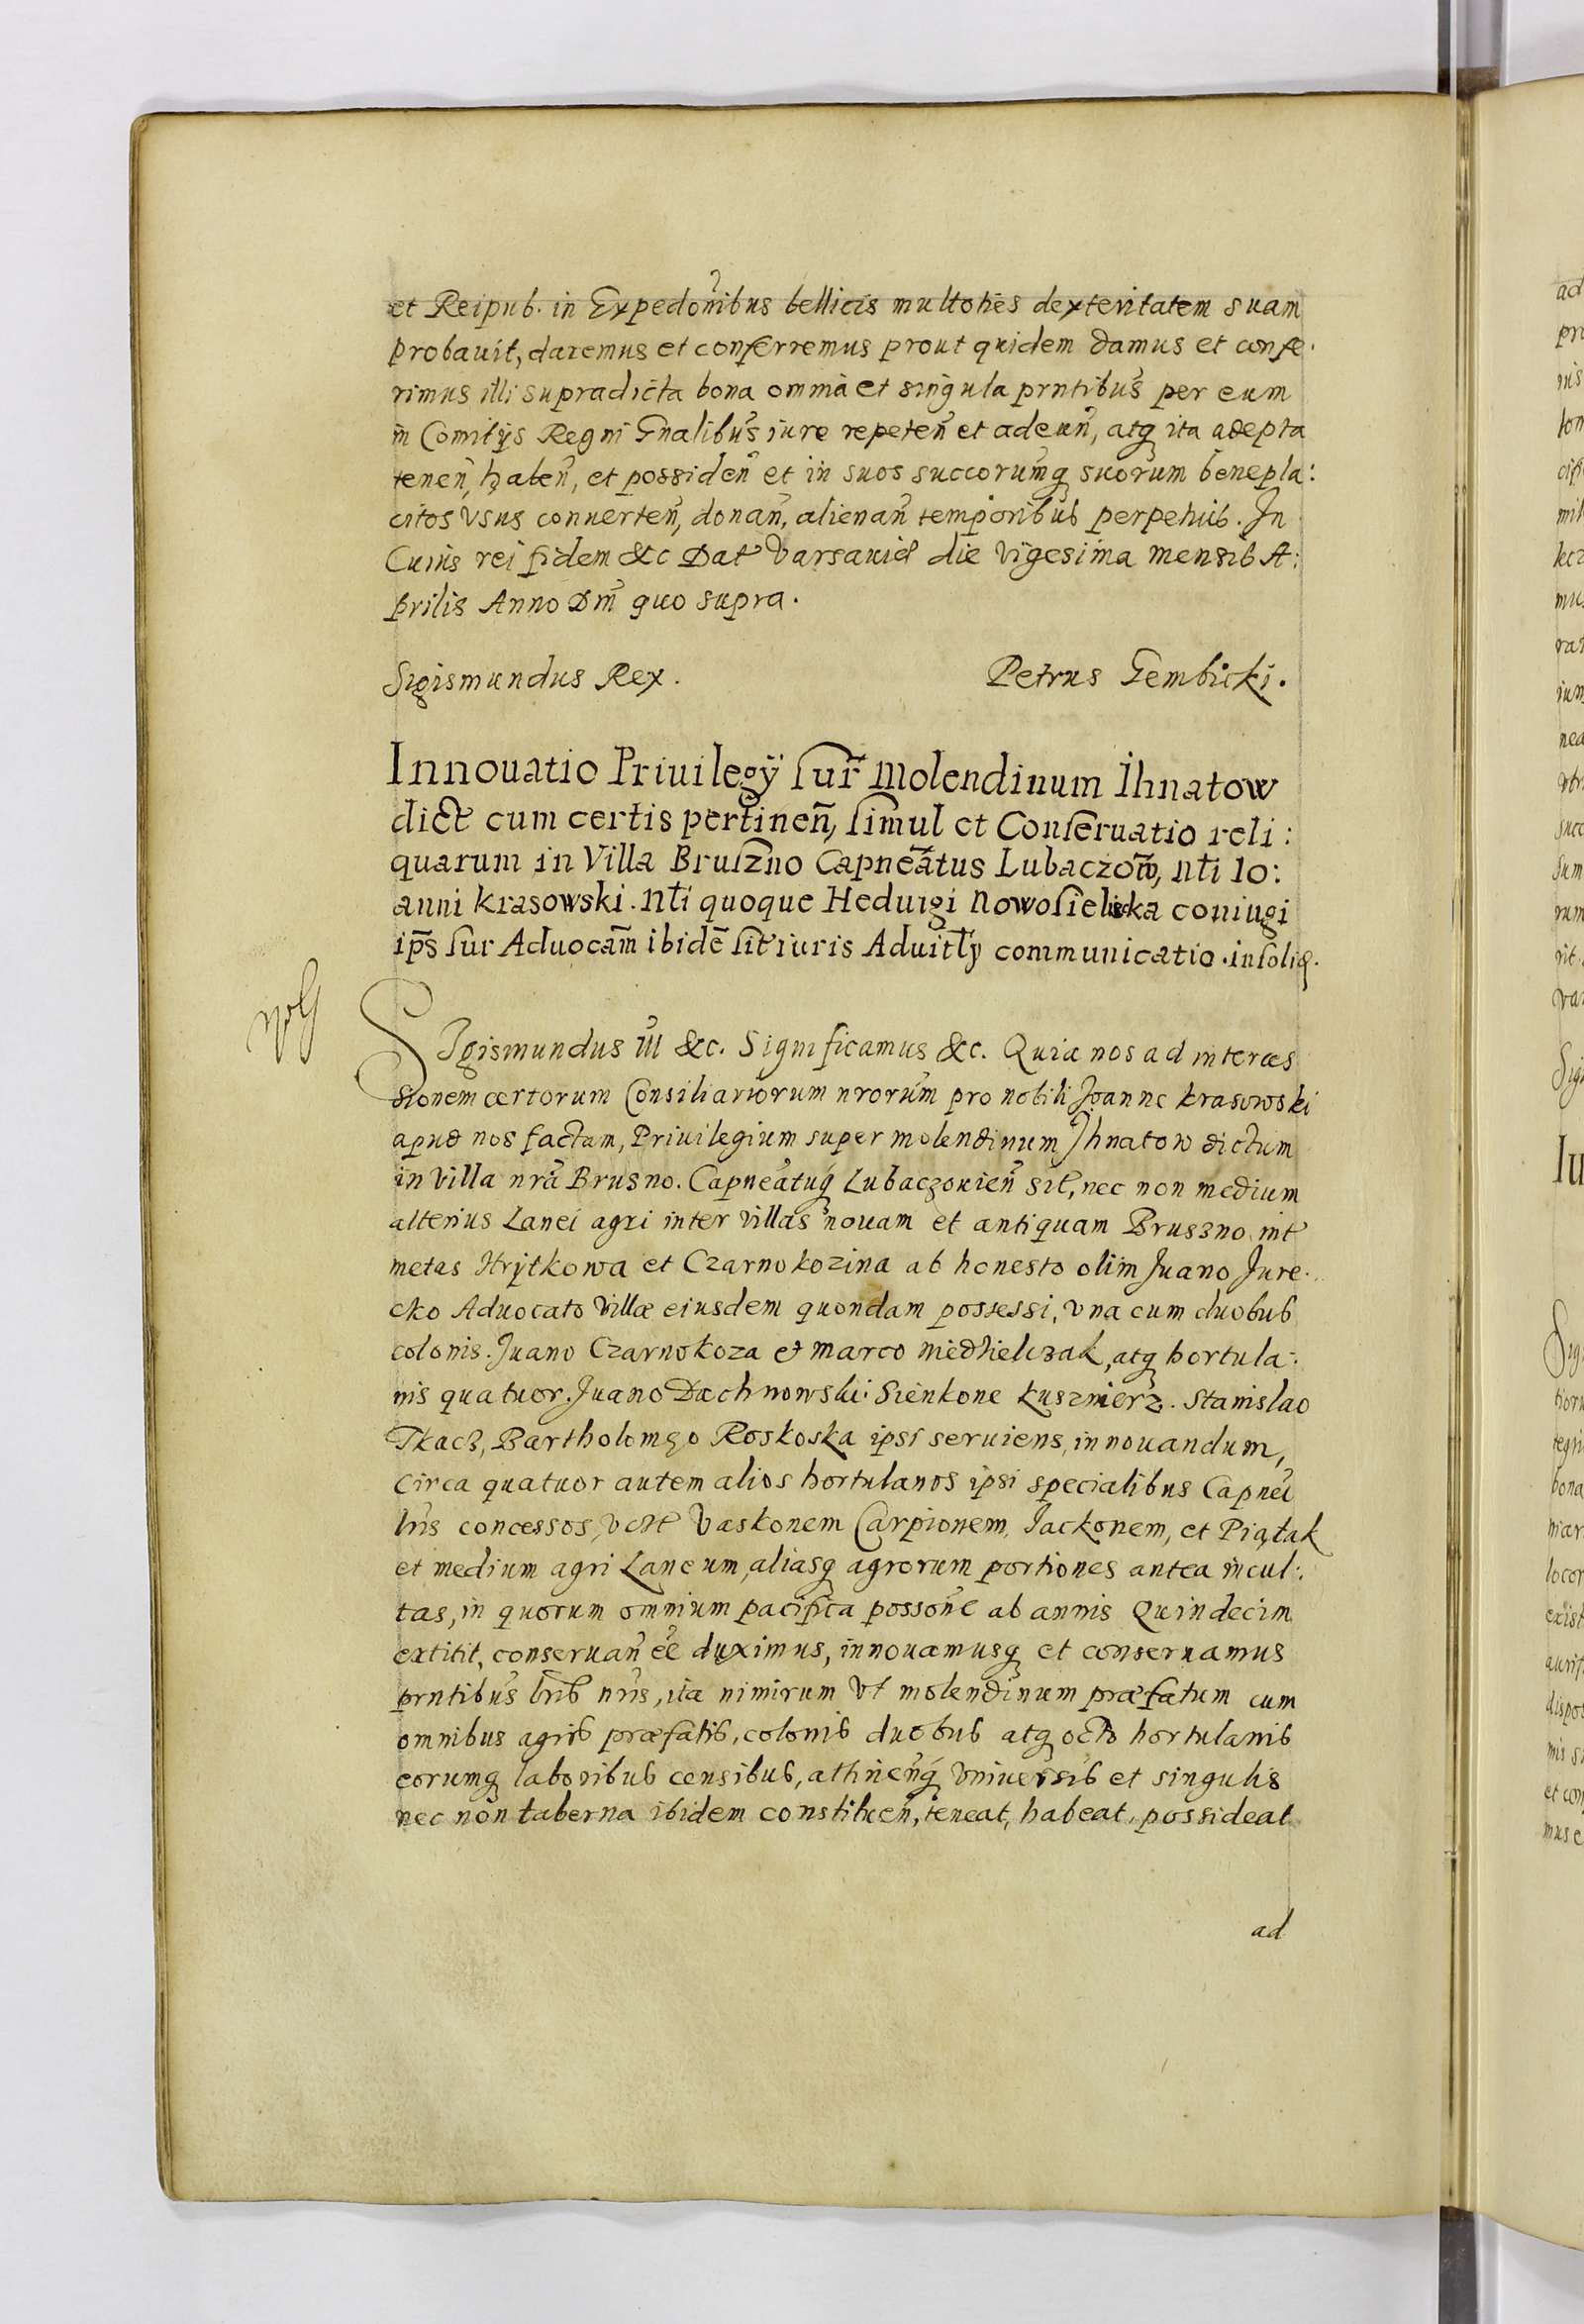 et Reipub. in Expedoñibus bellicis multoties dexteritatem suam
probauit, daremus et conferremus prout quidem damus et confe.
rimus illi supradicta bona omnia et singula prntibus per eum
in Comitijs Regni Gnalibus iure repeteñ et adeuñ, atq ita adepta
teneñ, habeñ, et possideñ et in suos succorumq suorum benepla:
citos vsus conuerteñ, donañ, alienañ temporibus perpetuis. In
Cuius rei fidem &c Dat Varsauiæ die vigesima mensis A:
prilis Anno Dm̃ quo supra.
Sigismundus Rex. Petrus Gembicki.
Innouatio Priuilegÿ sur̃ Molendinum Ihnatow
dict cum certis pertineñ, simul et Conseruatio reli:
quarum in Villa Bruszno Capneãtus Lubaczow̃, Nti Io:
anni Krasowski. Nti quoque Heduigi Nowosielska coniugi
ip̃s sur Aduocam̃ ibidẽ sit iuris Aduitly communicatio. in soliq.
Sigismundus III &c. Significamus &c. Quia nos ad interces
sionem certorum Consiliariorum nrorum pro nobili Joanne Krasowski
apud nos factam, Priuilegium super molendinum Jhnatow dictum
in Villa nrã Brusno. Capneatuq Lubaczouieñ sit, nec non medium
alterius Lanei agri inter villas nouam et antiquam Bruszno int
metas Hrytkowa et Czarnokozina ab honesto olim Juano Jure.
cko Aduocato Villæ eiusdem quondam possessi, vna cum duobus
colonis. Juano Czarnokoza et Marco Miedzielczak, atq hortula:
nis quatuor. Juano Dachnowski. Sienkone Kusznierz. Stanislao
Tkacz, Bartholomęo Roskoska ipsi seruiens, innouandum,
Circa quatuor autem alios hortulanos ipsi specialibus Capnei
lris concessos, vctt Vaskonem Carpionem, Jackonem, et Piątak
et medium agri Laneum, aliasq agrorum portiones antea incul:
tas, in quorum omnium pacifica possone ab annis Quindecim
extitit, conseruañ ẽe duximus, innouamusq et conseruamus
prntibus lris nris, ita nimirum vt molendinum præfatum cum
omnibus agris præfatis, colonis duobus atq octo hortulanis
eorumq laboribus censibus, attinenq vniuersis et singulis
nec non taberna ibidem constitueñ, teneat, habeat, possideat
ad